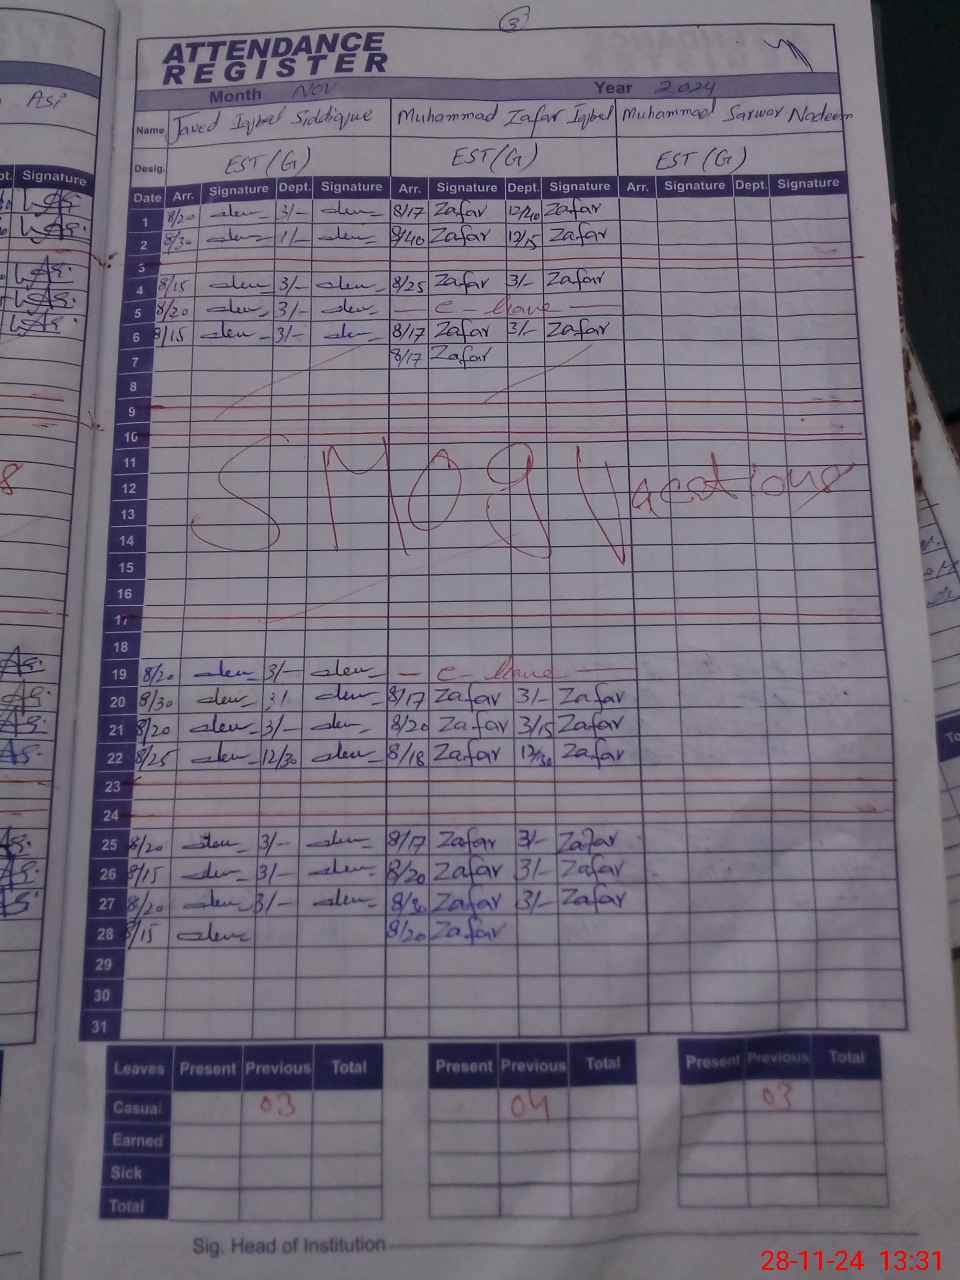 3
ATTENDANCE
REGISTER
Month Nov Year 2024
Name Javed Iqbal Siddique Muhammad Zafar Iqbal Muhammad Sarwar Nadeem
Desig. EST (G) EST (G) EST (G)
Date Arr. Signature Dept. Signature Arr. Signature Dept. Signature Arr. Signature Dept. Signature
1 8/20 3/- 8/17 Zafar 12/40 Zafar
2 8/30 1/- 8/40 Zafar 12/15 Zafar
3
4 8/15 3/- 8/25 Zafar 3/- Zafar
5 8/20 3/- c- leave
6 8/15 3/- 8/17 Zafar 3/- Zafar
7 8/17 Zafar
8
9
10
11
12 SMOg Vacations
13
14
15
16
17
18
19 8/20 3/- c- leave
20 8/30 3/- 8/17 Zafar 3/- Zafar
21 8/20 3/- 8/20 Zafar 3/15 Zafar
22 8/25 12/30 8/18 Zafar 12/30 Zafar
23
24
25 8/20 3/- 8/17 Zafar 3/- Zafar
26 8/15 3/- 8/20 Zafar 3/- Zafar
27 8/20 3/- 8/30 Zafar 3/- Zafar
28 8/15 8/20 Zafar
29
30
31
Leaves Present Previous Total Present Previous Total Present Previous Total
Casual 03 04 03
Earned
Sick
Total
Sig. Head of Institution
28-11-24 13:31